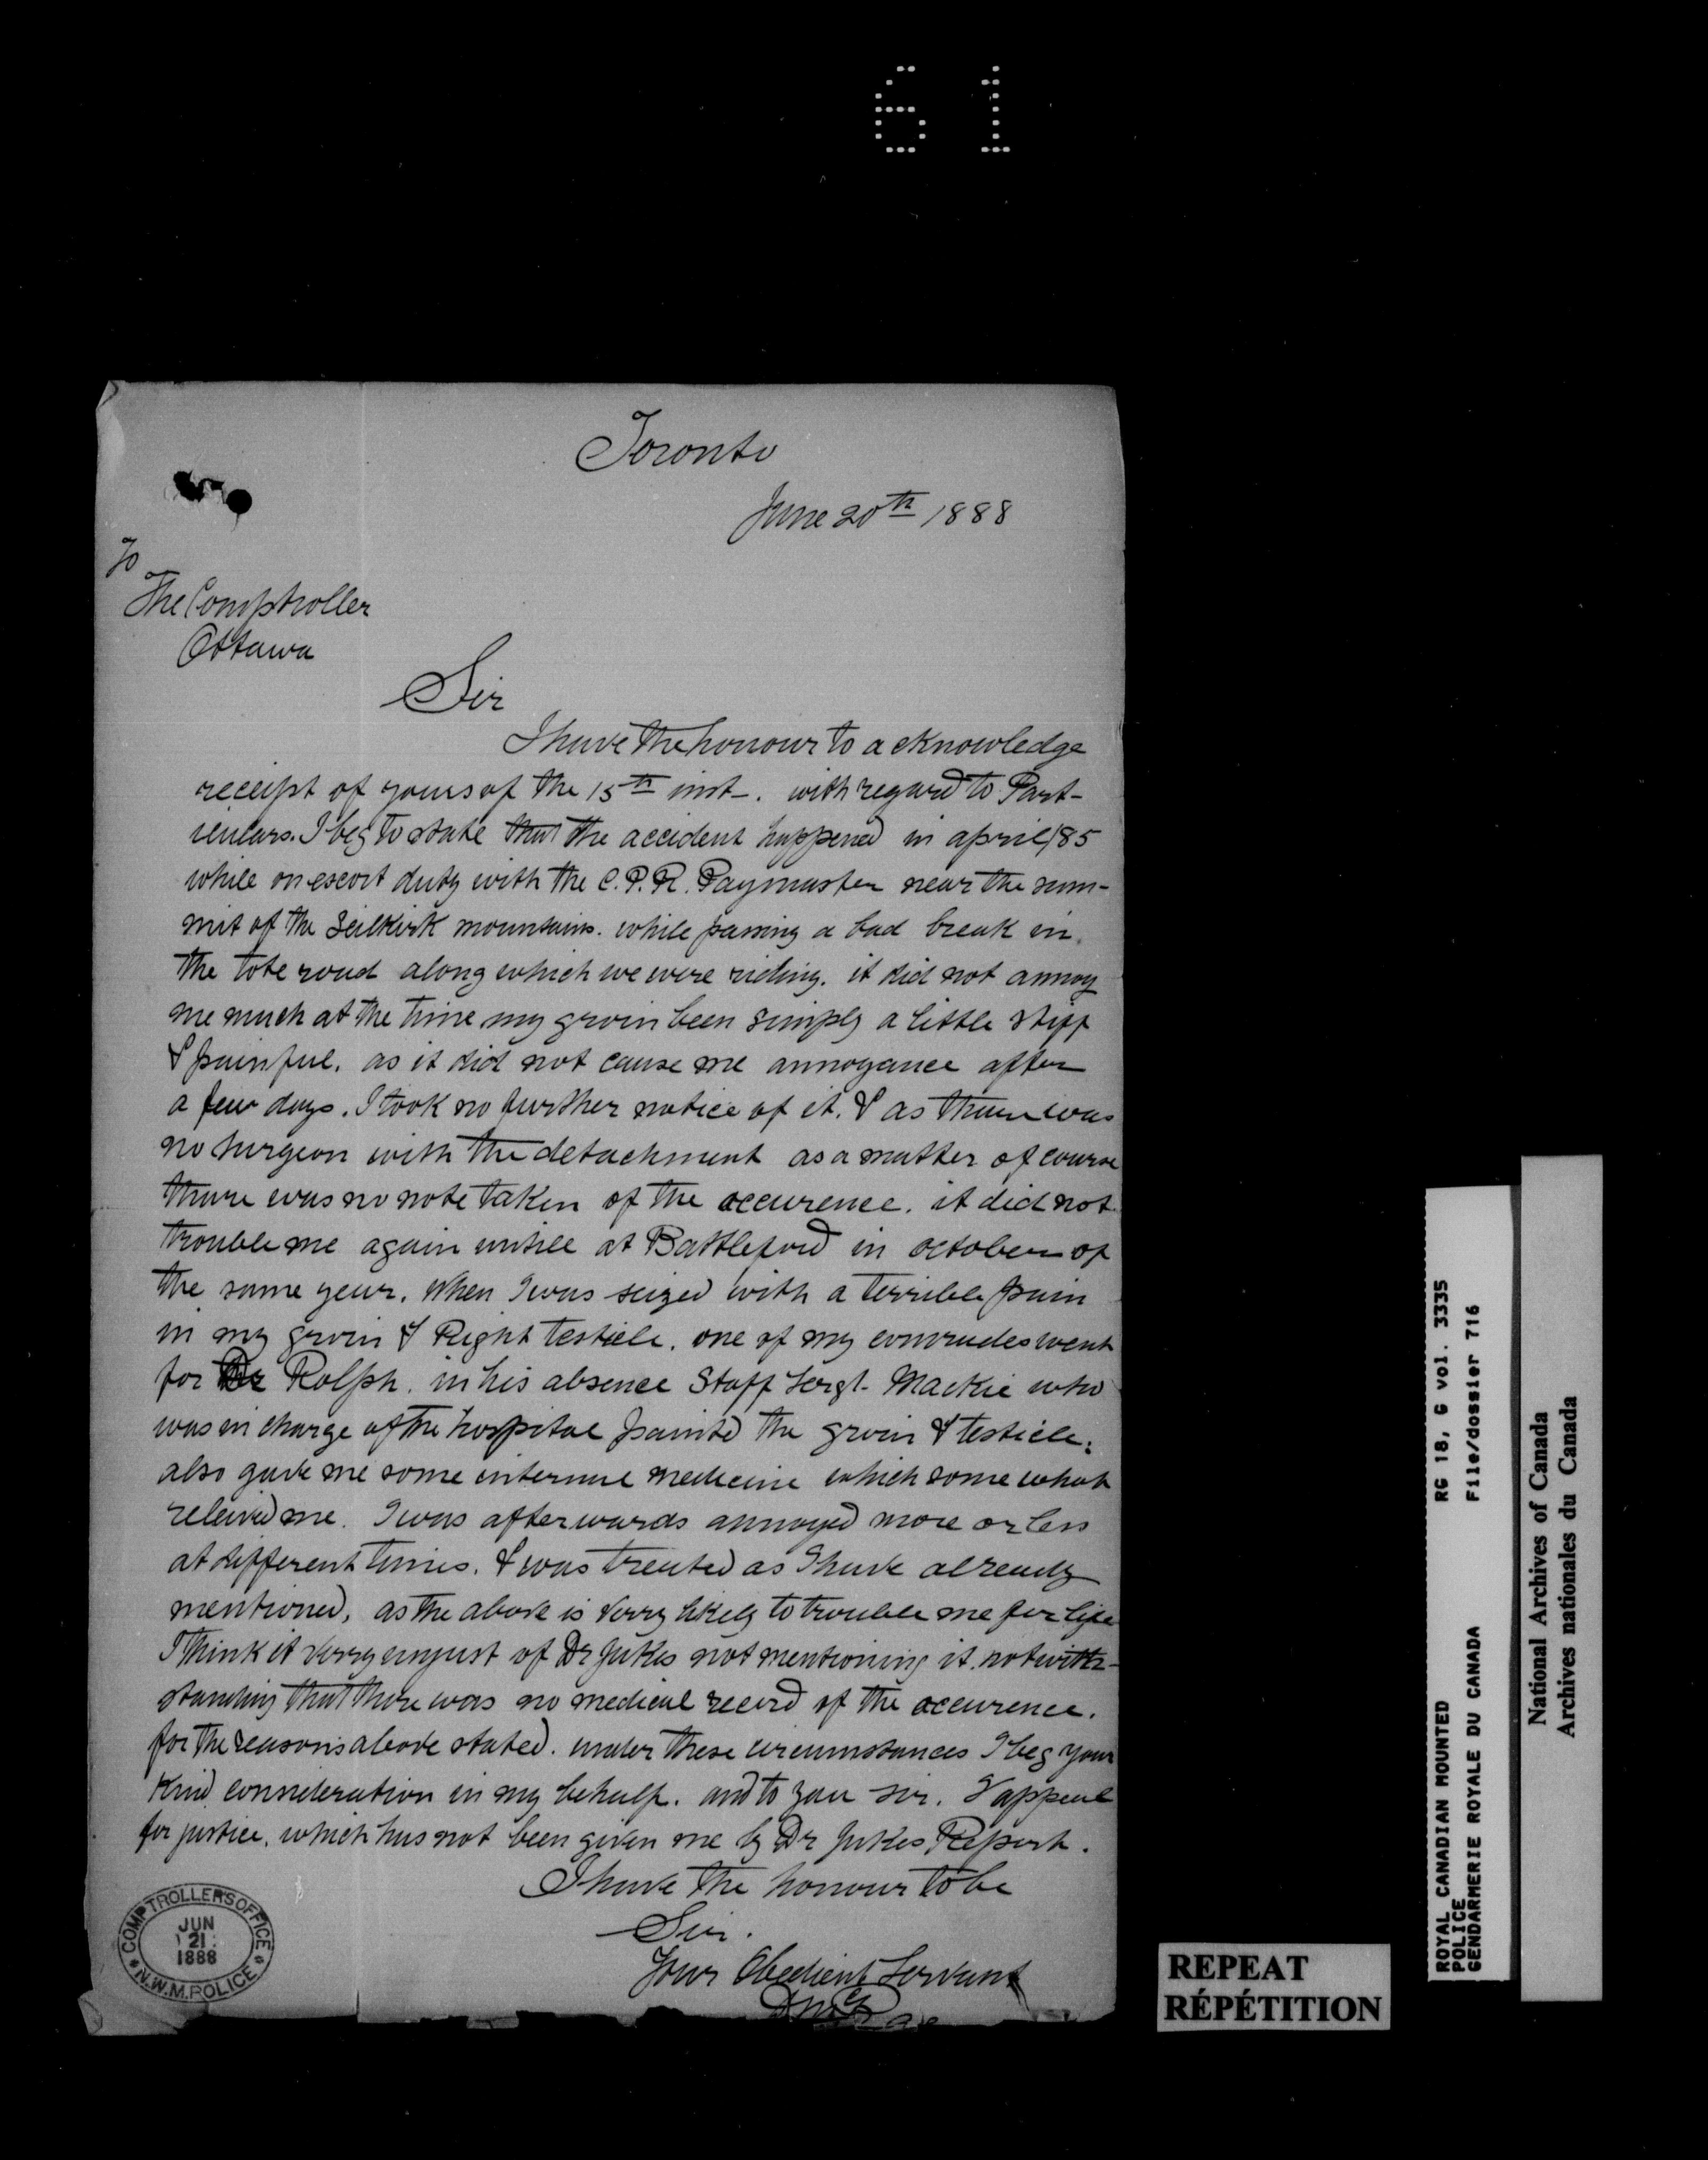 61
Toronto
June 20th 1888
To
The Comptroller
Ottawa
Sir
I have the honour to acknowledge
receipt of yours of the 15th inst-. with regard to Part-
iculars. I beg to state that the accident happened in april/85
while on escort duty with the C.P.R. Paymaster near the sum-
mit of the Seilkirk mountains. while passing a bad break in
the tote road along which we were riding. it did not annoy
me much at the time my groin been simply a little stiff
& painful. as it did not cause me annoyance after
a few days. I took no further notice of it. & as thure was
no surgeon with the detachment as a matter of course
thure was no note taken of the occurence. it did not
trouble me again untill at Battleford in october of
the same year. When I was seized with a terrible pain
in my groin & Right testicle. one of my comrades went
for Dr Rolph. in his absence Staff Sergt. Mackie who
was in charge of the hospital painted the groin & testicle.
also gave me some internal medicine which some what
releived me. I was afterwards annoyed more or less
at different times. & was treated as I have already
mentioned, as the above is verry likely to trouble me for life
I think it verry unjust of Dr Jukes not mentioning it. notwith-
standing that there was no medical record of the occurence.
for the reasons above stated. under these circumstances I beg your
Kind consideration in my behalf. and to you sir. I appeal
for justice. which has not been given me by Dr Jukes Report.
I have the honour to be
Sir.
Your Obedient Servant
COMPTROLLERS OFFICE
JUN
21
1888
N.W.M. POLICE
REPEAT
RÉPÉTITION
ROYAL CANADIAN MOUNTED RG 18, G vol. 3335
POLICE
GENDARMERIE ROYALE DU CANADA File/dossier 716
National Archives of Canada
Archives nationales du Canada